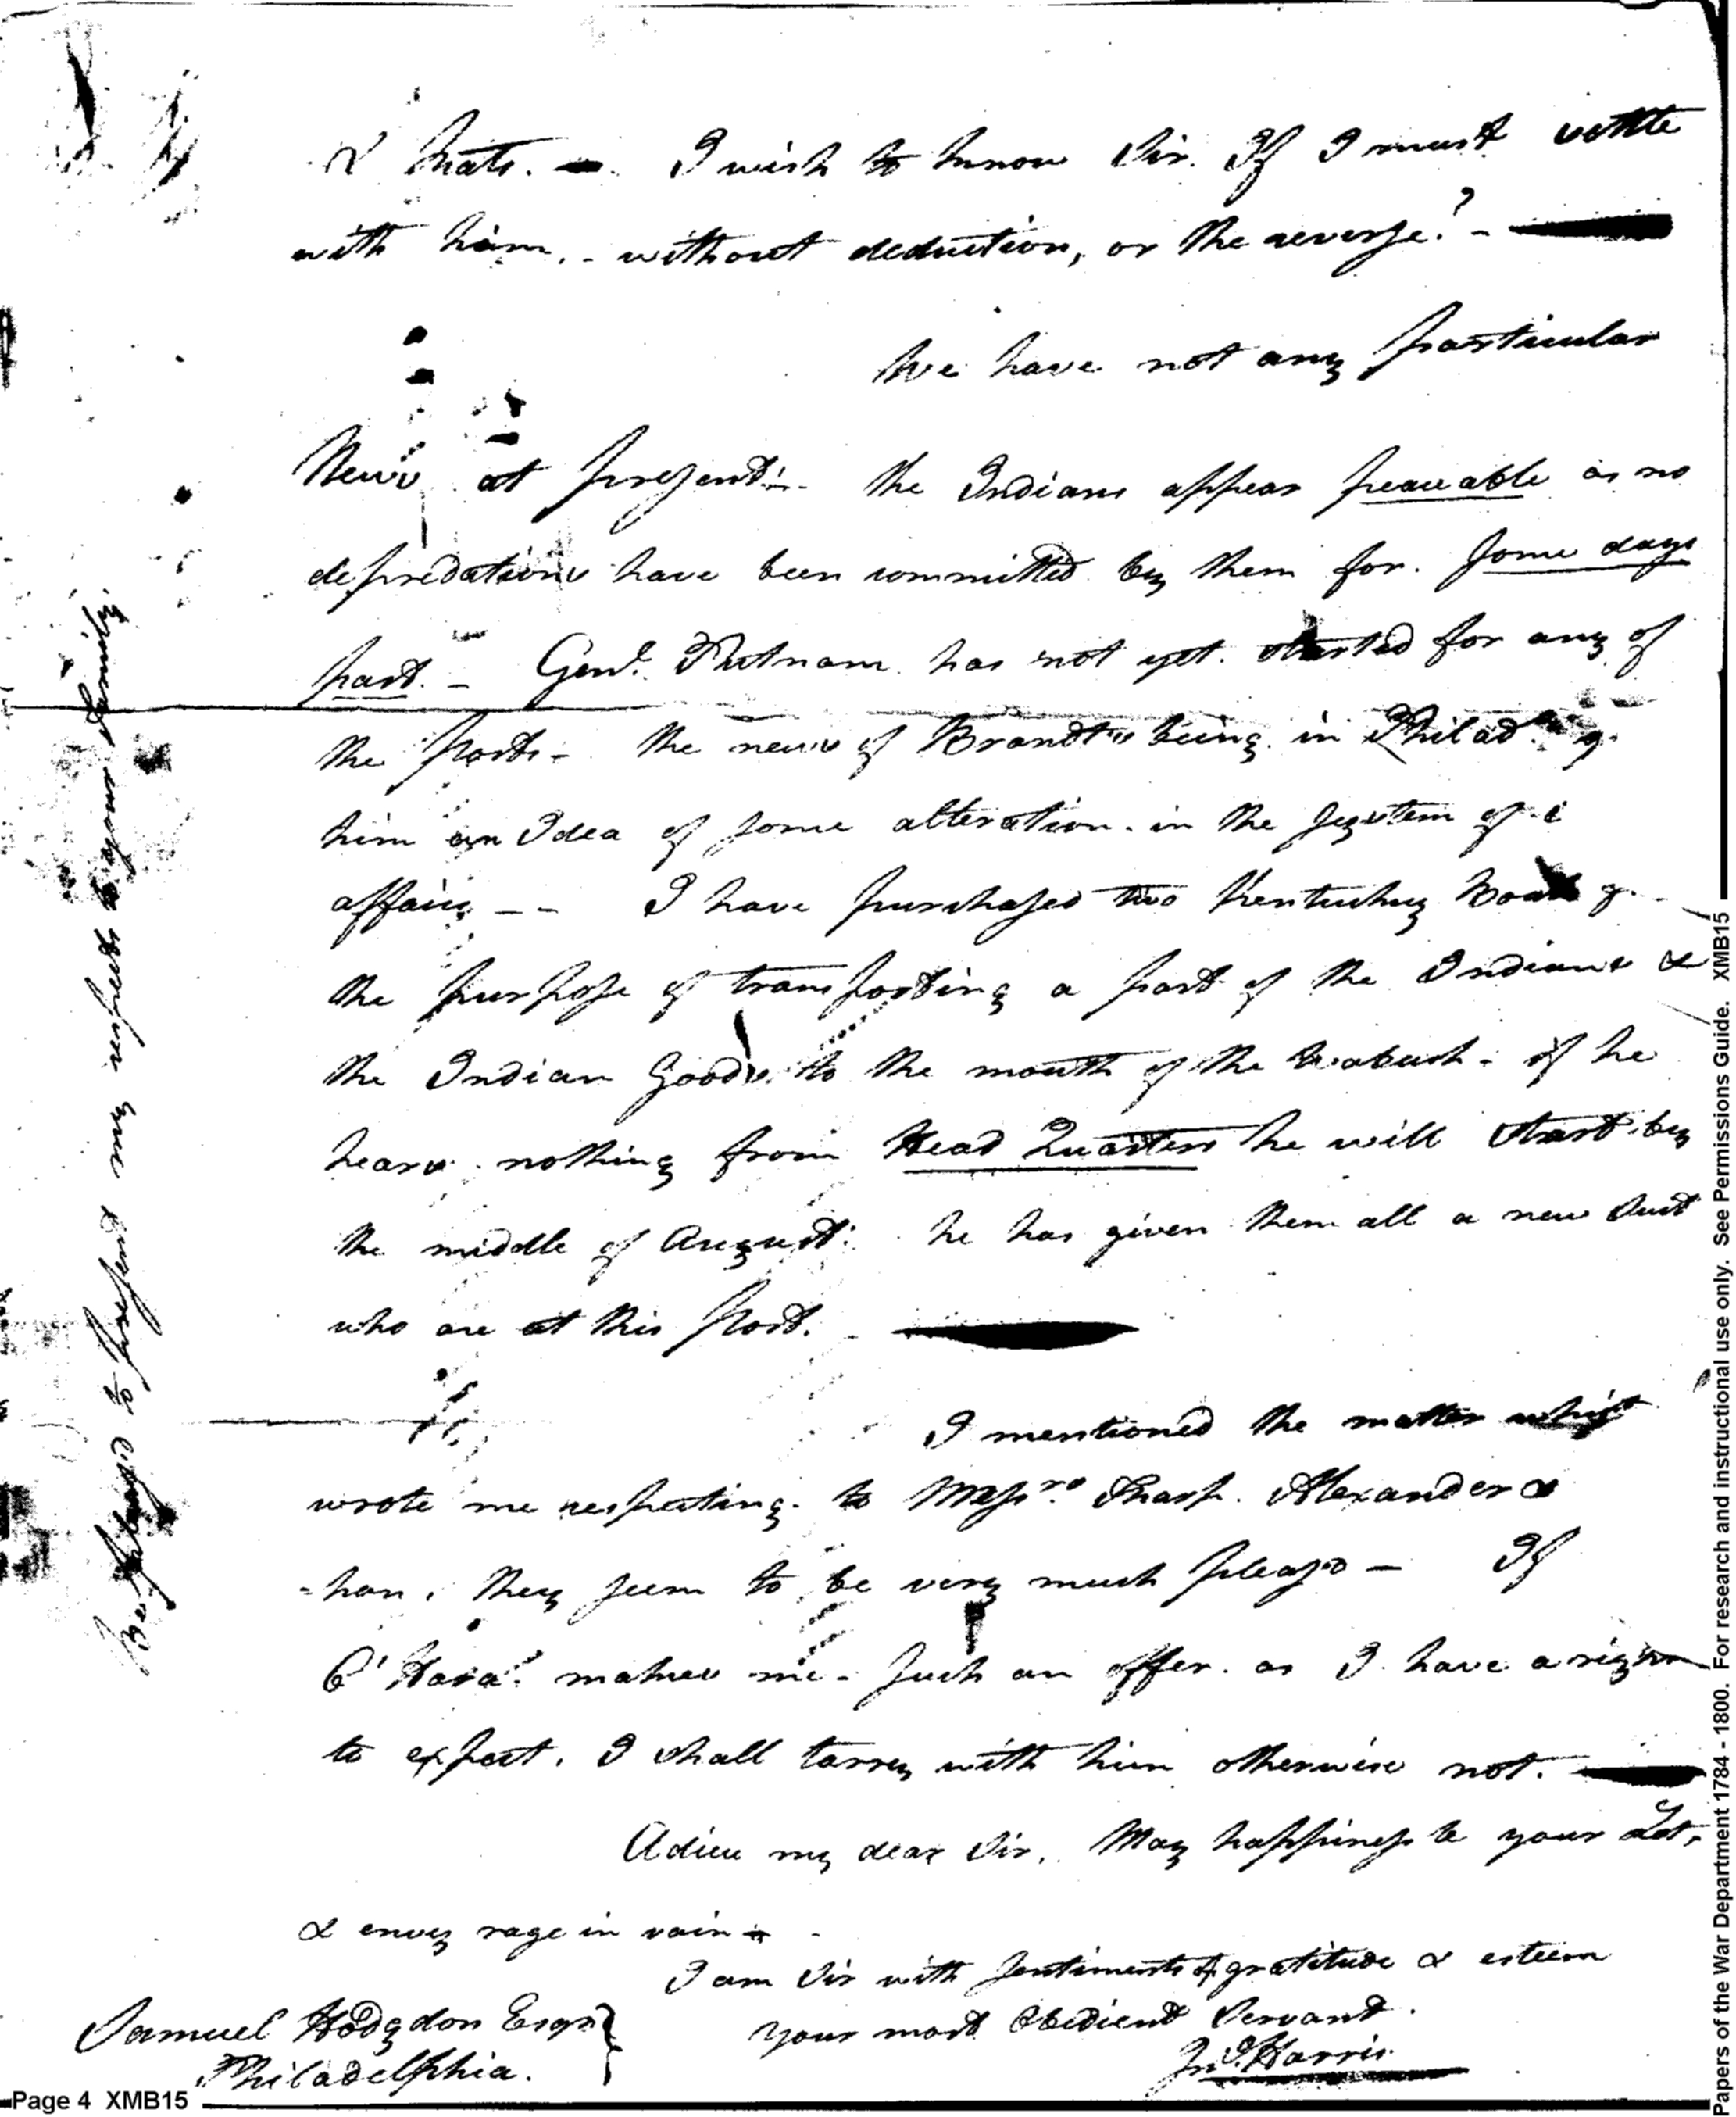 & hats. — I wish to know Sir. If I must settle
with him, - without deduction, or the reverse? -
We have not any particular
News at present - the Indians appear peaceable as no
depredations have been committed by them for. some days
past. - Genl. Putnam has not yet started for any of
the posts - the news of Brandts being in Philad
him an Idea of some alteration in the system of
affairs - - I have purchased two Kentucky Boats
the purpose of transporting a part of the Indians &
the Indian Goods to the mouth of the Wabash - if he
hears nothing from Head Quarters he will start by
the middle of August. he has given them all a new Suit
who are at this post.
I mentioned the matter
wrote me respecting to Messrs. Sharp. Alexander &
-han, they seem to be very much pleas'd - If
O'Hara makes me - such an offer. as I have a right
to expect. I shall tarry with him otherwise not.
Adieu my dear Sir. May happiness be your Lot,
& envy rage in vain
I am Sir with sentiments of gratitude & esteem
your most Obedient Servant.
Jno. Harris
Samuel Hodgdon Esqr.
Philadelphia.
to present my respects to your family
Page 4 XMB15
Papers of the War Department 1784 - 1800. For research and instructional use only. See Permissions Guide. XMB15